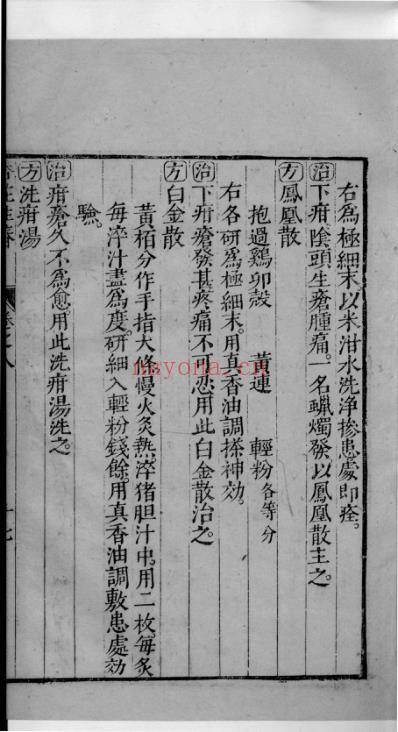 右爲極細末以米泔水洗净摻患處卽痊。
治下疳陰頭生瘡腫痛。一名蠟燭發以鳳凰散主之。
方鳳凰散
抱過鷄卵殼 黃連 輕粉各等分
右各研爲極細末。用真香油調搽神效。
治下疳瘡發甚疼痛不可忍用此白金散治之。
方白金散
黃栢分作手指大條慢火炙熱淬猪胆汁中。用二枚。每炙
每淬汁盡爲度。研細入輕粉錢餘。用真香油調敷患處效
驗。
治疳瘡久不爲愈。用此洗疳湯洗之。
方洗疳湯
卷之八
十七